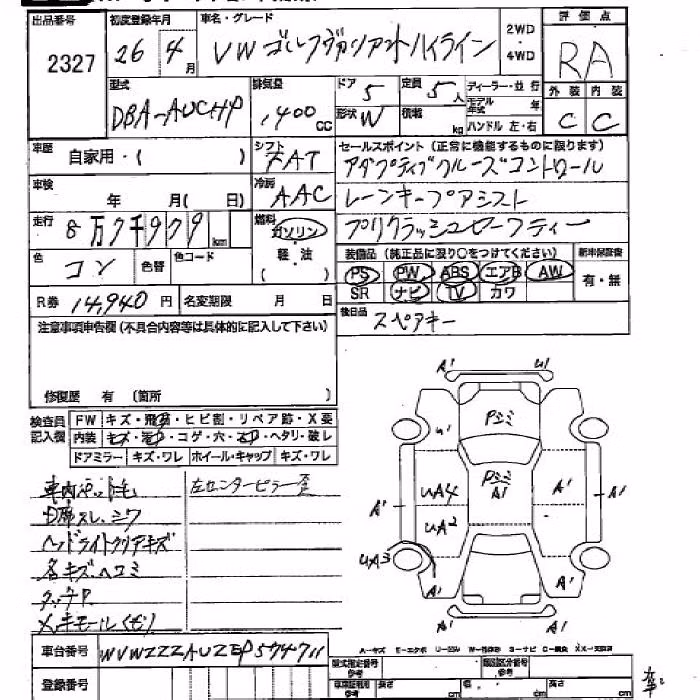 出品番号 初度登録年月 車名・グレード 2WD ・ 4WD 評価点
2327 26 4月 VW ゴルフヴァリアントハイライン RA
型式 排気量 ドア 5 定員 5人 ディーラー・並行 外装 内装
DBA-AUCHP 1400 CC 形状 W 積載 kg モデル年式 年 C C
ハンドル 左・右
車歴 自家用・( ) シフト FAT セールスポイント (正常に機能するものに限ります)
アダプティブクルーズコントロール
車検 年 月( 日) 冷房 AAC レーンキープアシスト
走行 8万9千979 km 燃料 ガソリン・軽油 ( ) プリクラッシュセーフティー
色 コン 色替 色コード 装備品 (純正品に限り○をつけてください) 新車保証書
PS PW ABS エアB AW 有・無
SR ナビ TV カワ
R券 14,940円 名変期限 月 日
後日品 スペアキー
注意事項申告欄 (不具合内容等は具体的に記入して下さい)
修復歴 有 (箇所 )
検査員記入欄 FW キズ・飛石・ヒビ割・リペア跡・X要
内装 キズ・汚・コゲ・穴・凹・ヘタリ・破レ
ドアミラー キズ・ワレ ホイール・キャップ キズ・ワレ
左センターピラー歪
席スレ、シワ
ヘッドライトクリアキズ
各キズ・ヘコミ
タッチP
メッキモールくもり
A' U1
Pミミ
U'
Pミミ
A1
A' UA4 A' A1
UA2
UA3
A' A'
A' A'
A-キズ E-エクボ
車台番号 WVWZZZAUZEP574711
型式指定番号 参考 類別区分番号 参考
登録番号 長さ cm 幅 cm 高さ cm